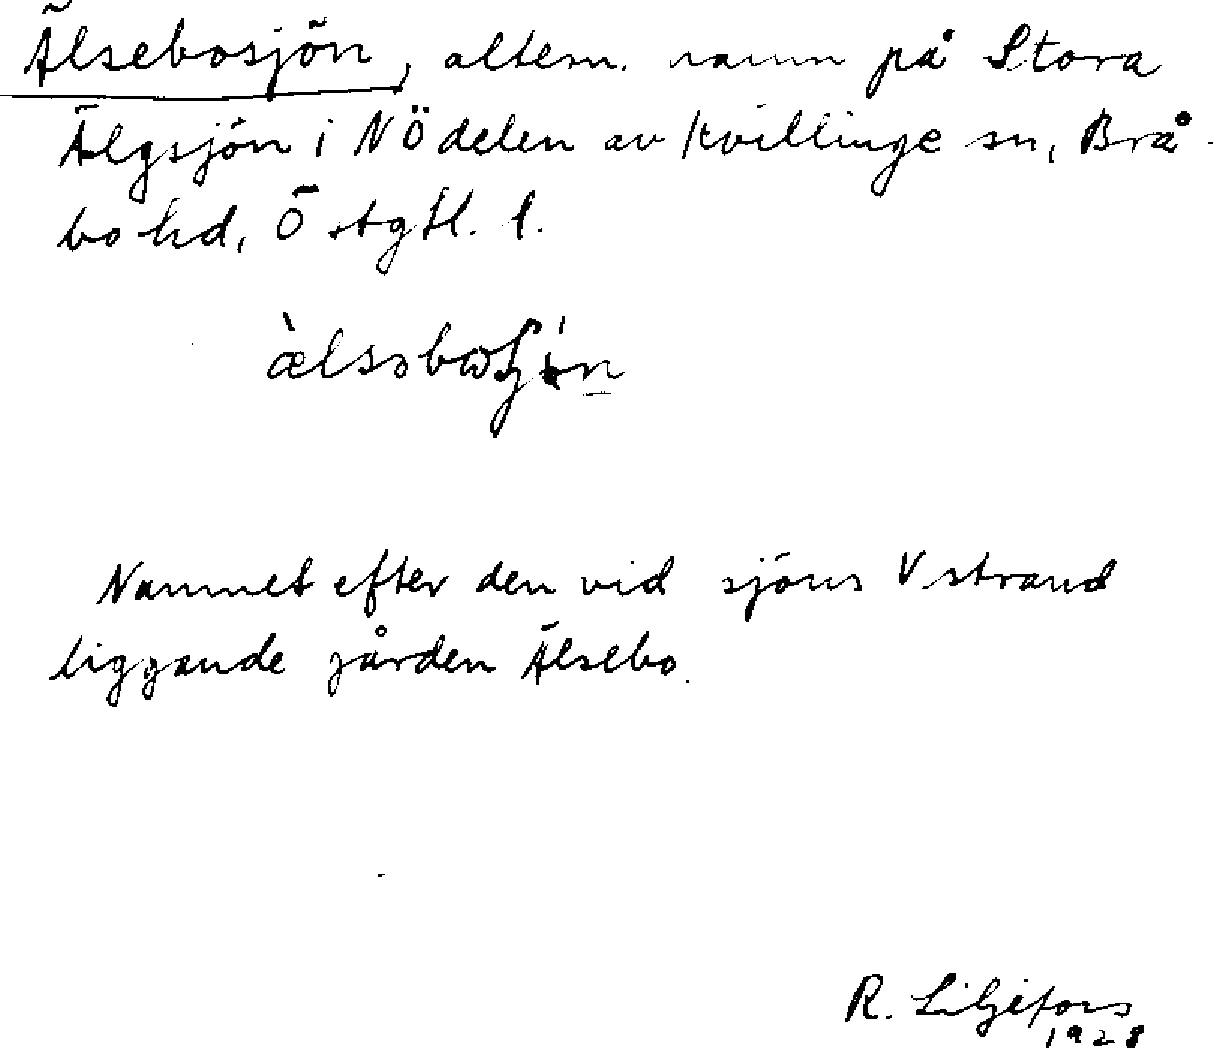 Älsebosjön, altern. namn på Stora
Älgsjön i NÖdelen av Kvillinge sn, Brå-
bo hd, Östgtl. l.
Namnet efter den vid sjöns V strand
liggande gården Älsebo.
R. Liljefors
1928